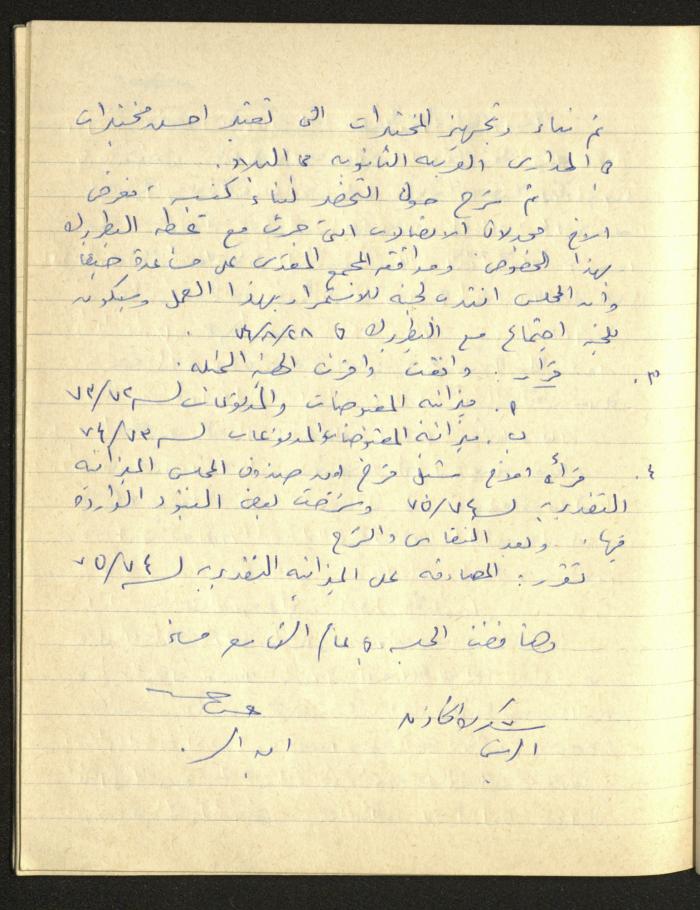 تم بناء وتجهيز المختبرات التي تعتبر احسن مختبرات
في المدارس العربية الثانوية في البلاد.
ثم شرح حول التحضير لبناء كنيسة، فعرض
الاخ الاتصالات التي جرت مع غبطة البطريرك
بهذا الخصوص وموافقة المجمع المقدس على مساعدة
وان المجلس انتدب لجنة للاستمرار بهذا العمل وسيكون
للجنة اجتماع مع البطريرك في ٢٨/٨/٧٤.
٣. قرار: وافقت واقرت الهيئة
أ. ميزانية المقبوضات والمدفوعات لسنة ٧٢/٧٣
ب. ميزانية المقبوضات والمدفوعات لسنة ٧٣/٧٤
٤. قرأ الاخ فرح امين صندوق المجلس الميزانية
التقديرية لسنة ٧٤/٧٥ وشرحت بعض البنود الواردة
فيها. وبعد النقاش والشرح
تقرر: المصادقة على الميزانية التقديرية لسنة ٧٤/٧٥
وهنا فضت الجلسة في تمام التاسعة مساء
شكري الخازن
الرئيس امين السر.